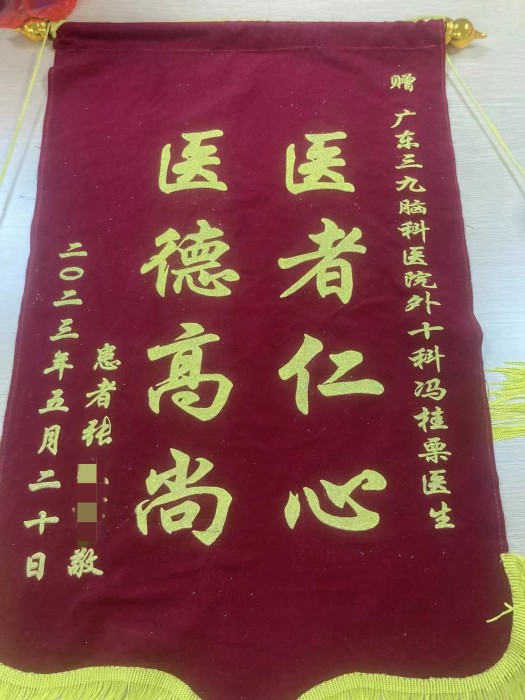 赠 广东三九脑科医院外十科冯桂栗医生
医者仁心
医德高尚
患者张 敬
二〇二三年五月二十日